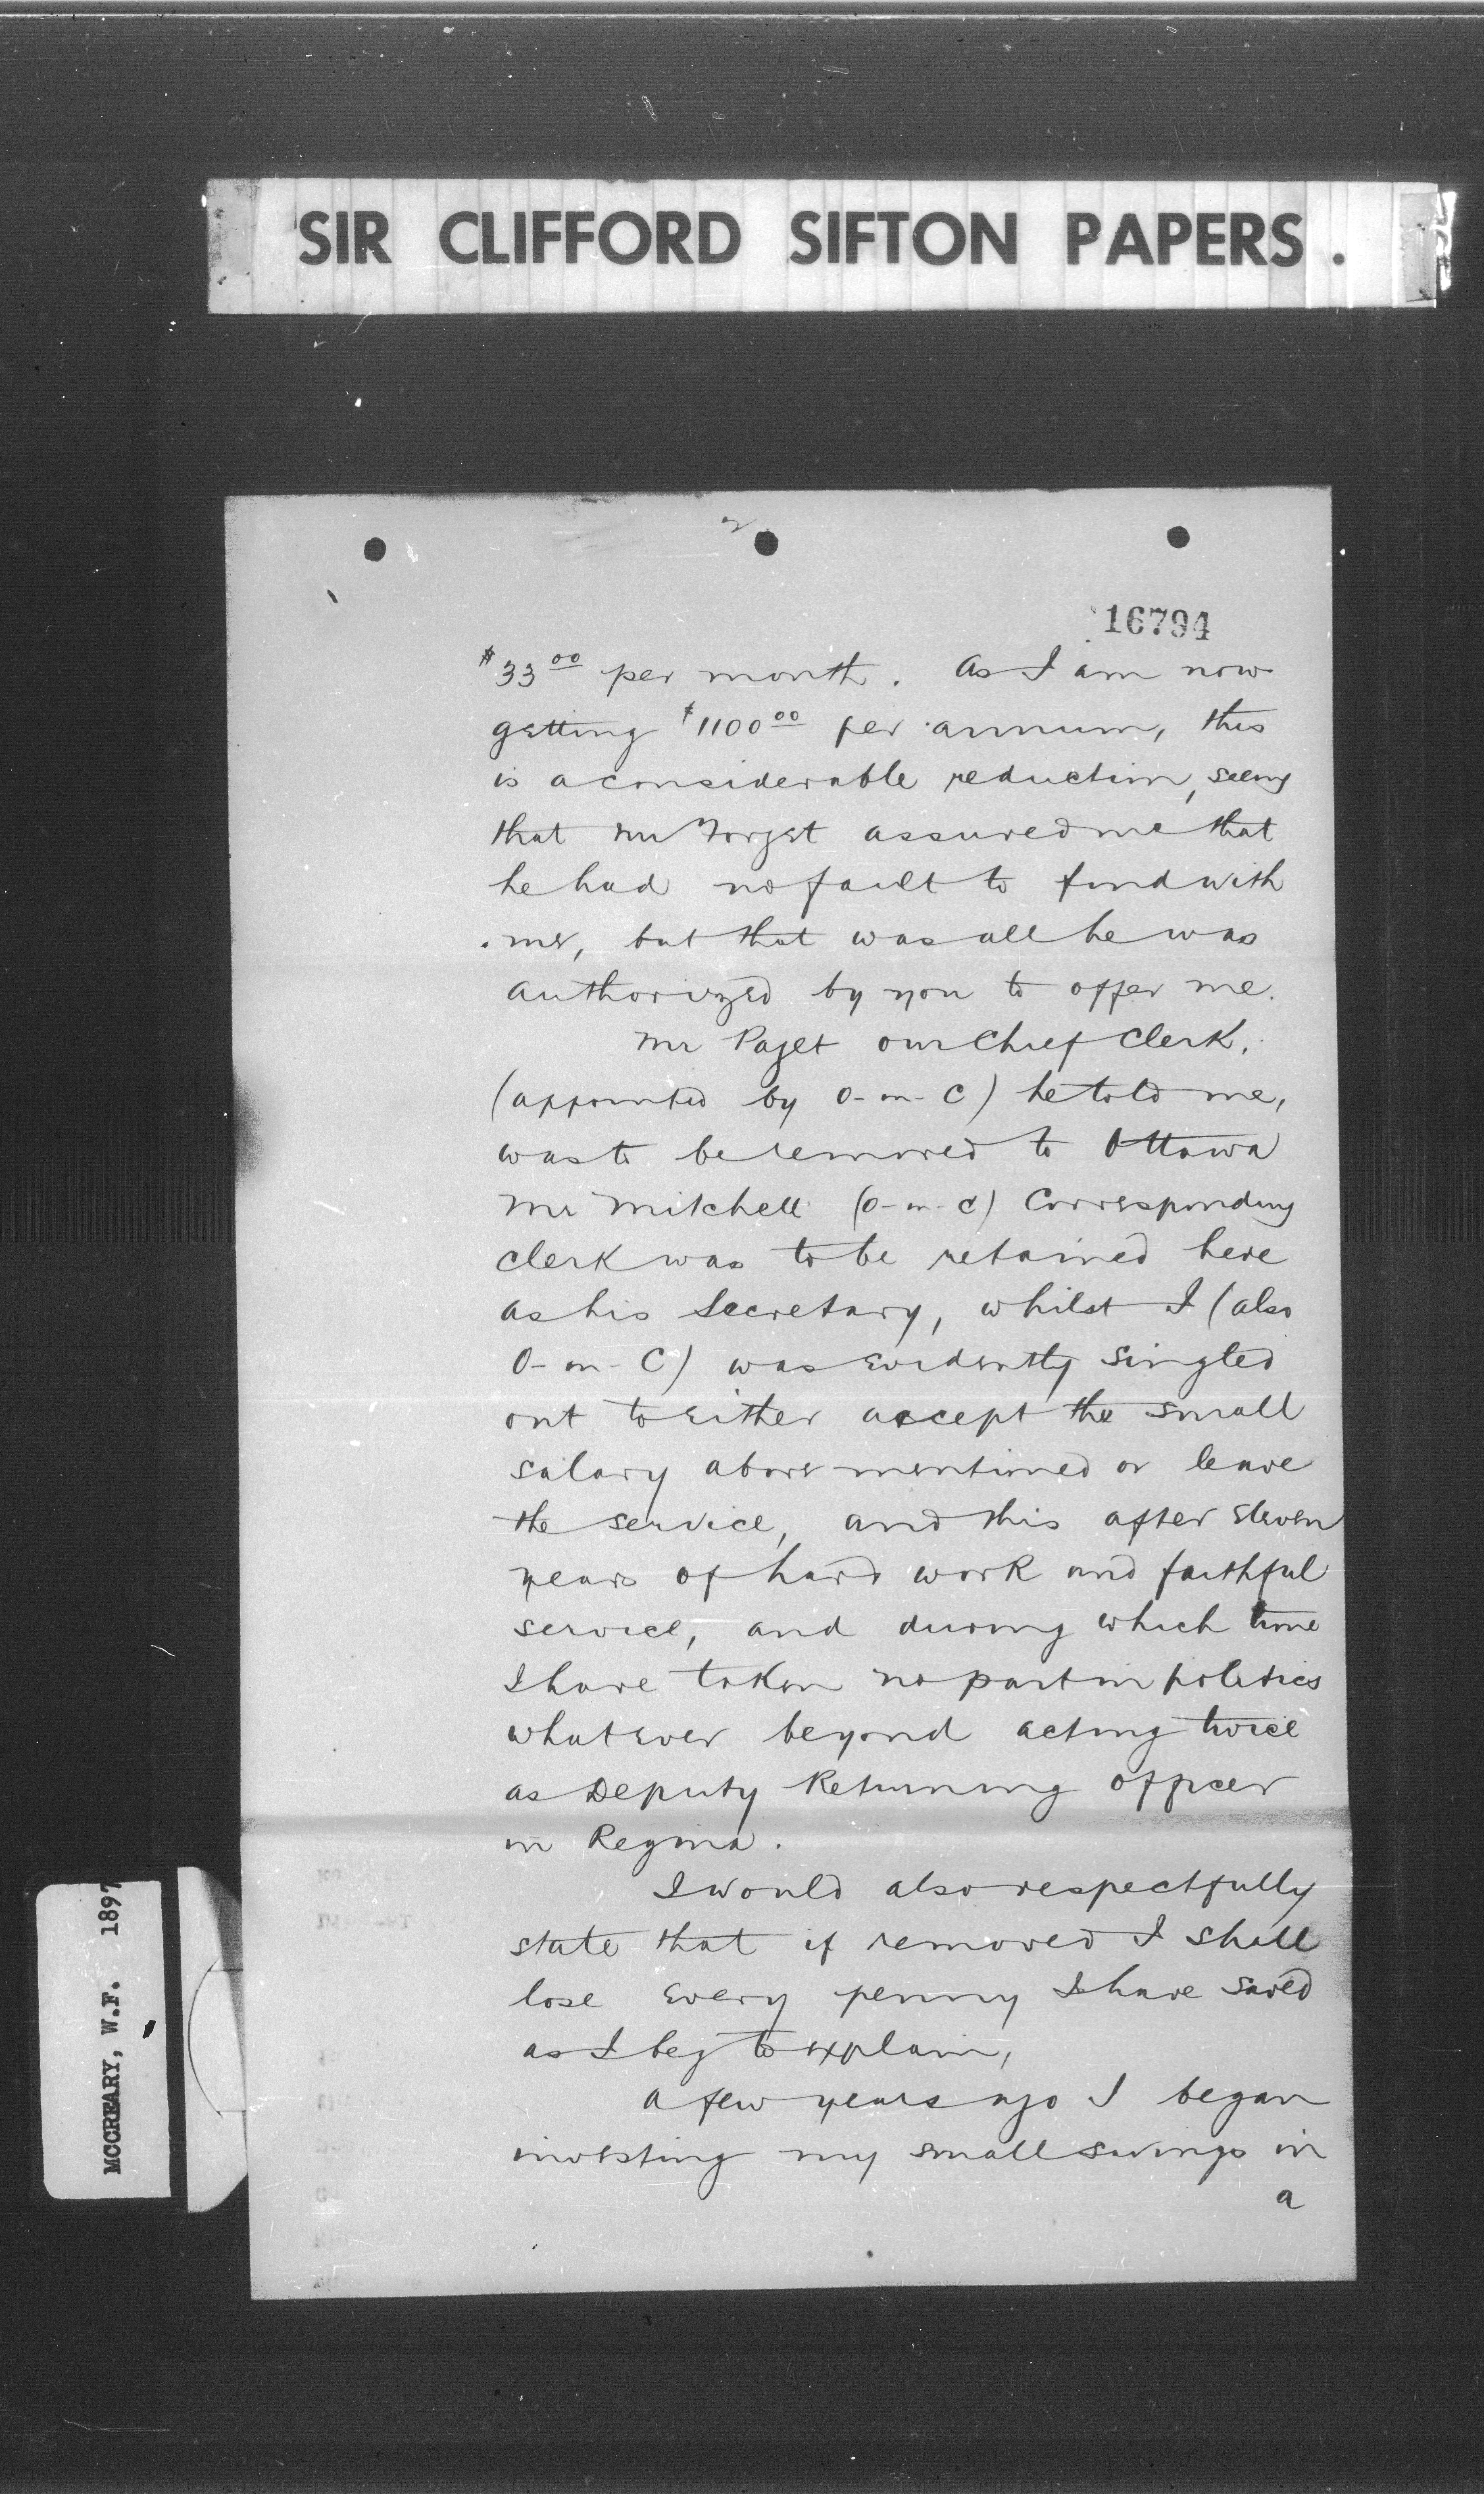 SIR CLIFFORD SIFTON PAPERS.
2
16794
$33.00 per month. As I am now
getting $1100.00 per annum, this
is a considerable reduction, seeing
that Mr Forget assured me that
he had no fault to find with
me, but that was all he was
authorized by you to offer me.
Mr Paget our Chief Clerk,
(appointed by O-in-C) he told me,
was to be removed to Ottawa
Mr Mitchell (O-in-C) Corresponding
clerk was to be retained here
as his Secretary, whilst I (also
O-in-C) was evidently singled
out to either accept the small
salary above mentioned or leave
the service, and this after eleven
years of hard work and faithful
service, and during which time
I have taken no part in politics
whatever beyond acting twice
as Deputy Returning Officer
in Regina.
I would also respectfully
state that if removed I shall
lose every penny I have saved
as I beg to explain,
A few years ago I began
investing my small savings in
a
MCCREARY, W.F. 1897